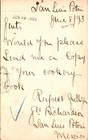 San Luis Potosi
June 8/93
Gent.
Would you please
Send me a Copy
of your Cookery
Book
Rupert
Richardson
San Luis Potosi
Mexico